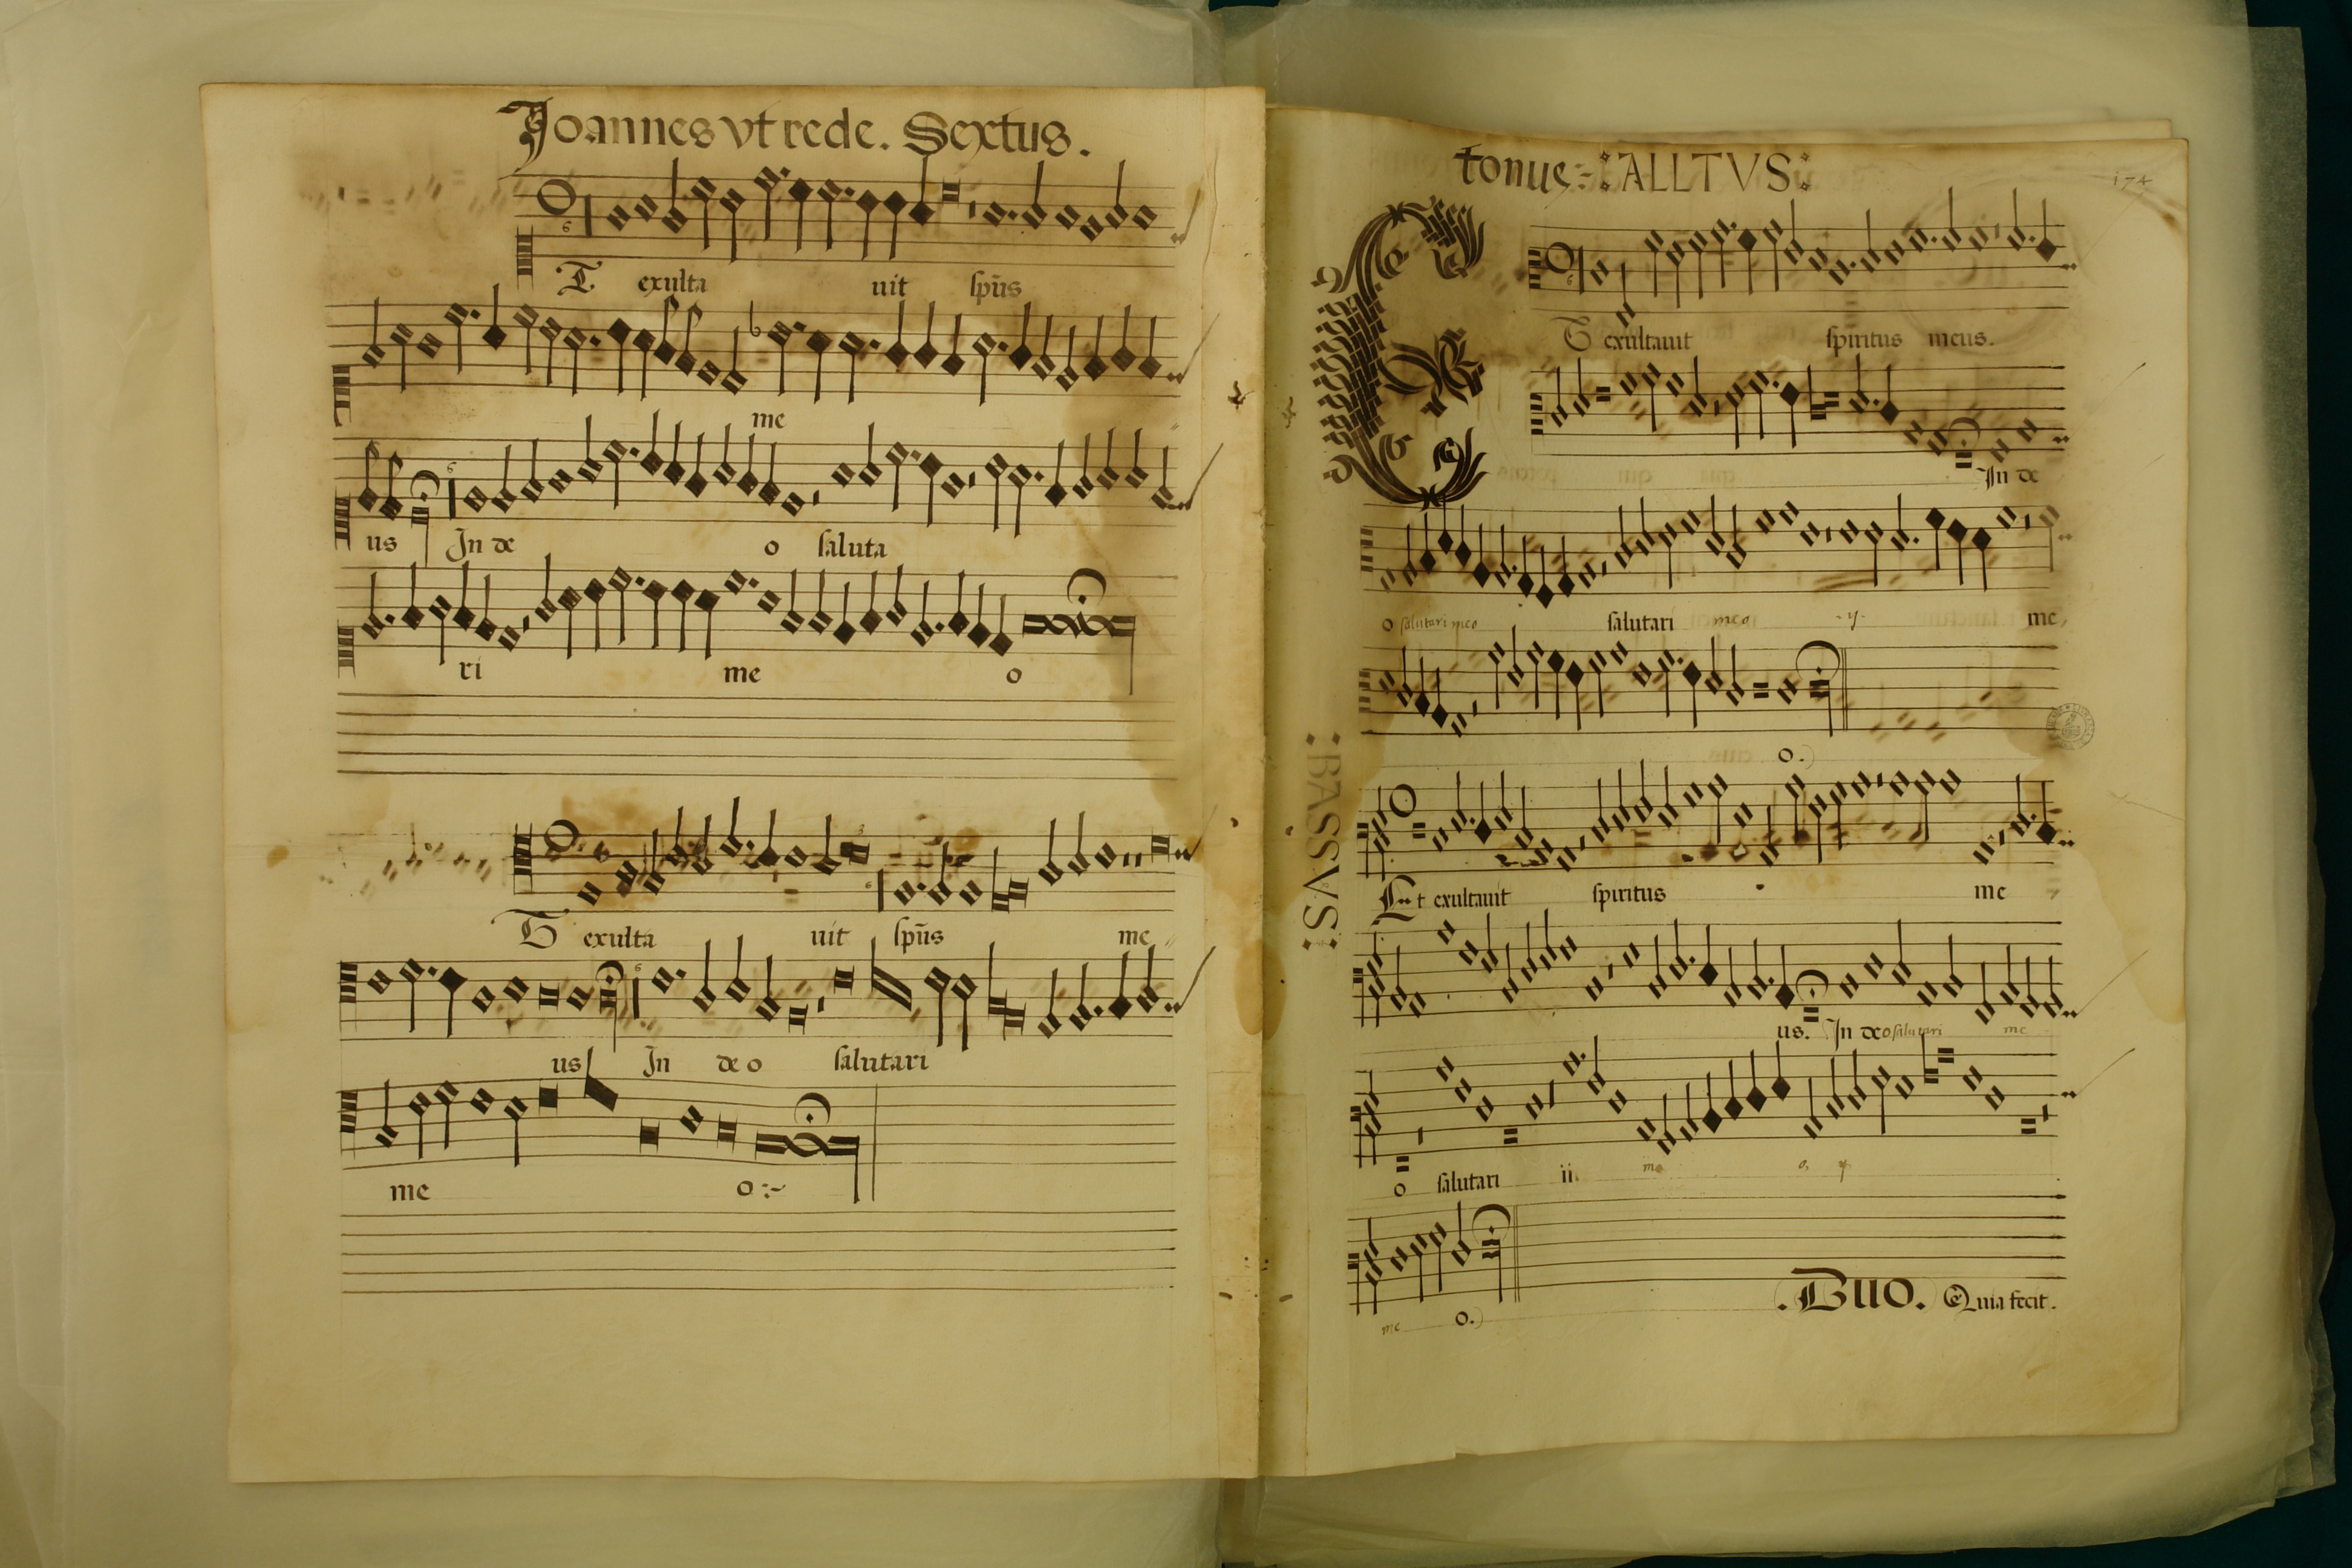 Joannes vt rede. Sextus.
Et exulta uit sp̄us
me
us In de o saluta
ri me o
Et exulta uit sp̄us me
us In de o salutari
me o :~
tonus :ALLTVS:
174
Et exultauit spiritus meus.
In de
o salutari meo salutari meo ij me
o.
:BASSVS:
Et exultauit spiritus me
us. In deo salutari me
o salutari ii. me o, ij
me o.
.Duo. Quia fecit.